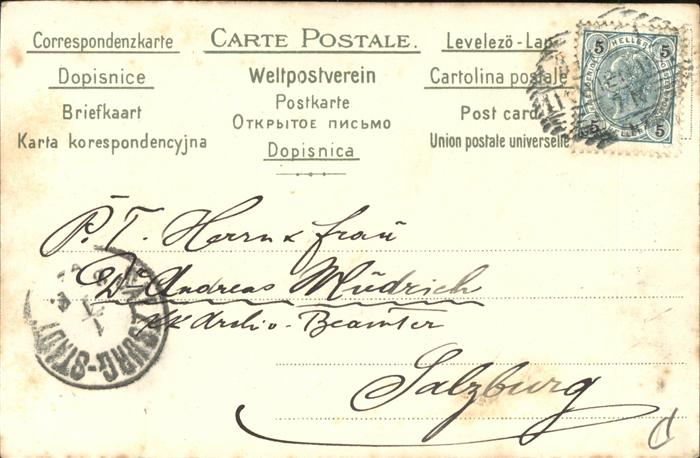 Correspondenzkarte
Dopisnice
Briefkaart
Karta korespondencyjna
CARTE POSTALE.
Weltpostverein
Postkarte
Открытое письмо
Dopisnica
Levelező-Lap
Cartolina postale
Post card
Union postale universelle
5 HELLER 5
5 HELLER 5
P. T. Herrn & Frau
Dr Andreas Mudrich
kk Archiv-Beamter
Salzburg
SALZBURG-STADT